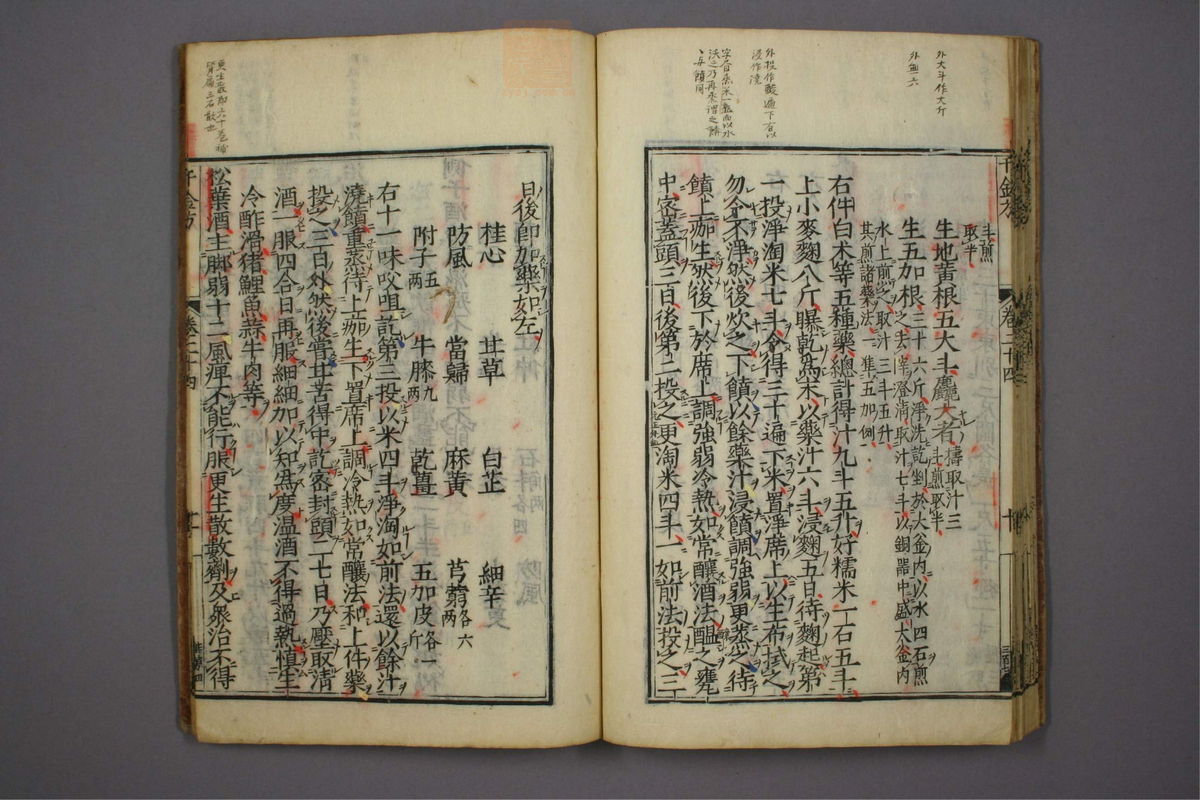 外大斗作大斤
外無二六
外投作酘遍下有以
浸作澆
斗煎
取半
生地黃根五大斗麤大者
擣取汁三
斗煎取半
生五加根三十六斤淨洗訖剉於大釜內以水四石煎
之去滓澄清取汁七斗以銅器中盛大釜內
水上煎之取汁三斗五升
其煎諸藥法一準五加例
右件白术等五種藥總計得汁九斗五升好糯米一石五斗
上小麥麴八斤曝乾為末以藥汁六斗浸麴五日待麴起第
一投淨淘米七斗令得三十遍下米置淨席上以生布拭之
勿令不淨然後炊之下饙以餘藥汁浸饙調強弱更蒸之待
饙上痂生然後下於席上調強弱冷熱如常釀酒法醞之甕
中密蓋頭三日後第二投之更淘米四斗一如前法投之三
千金方
卷二十四
日後即加藥如左
桂心 甘草 白芷 細辛
防風 當歸 麻黃 芎藭各六兩
附子五兩 牛膝九兩 乾薑 五加皮各一斤
右十一味㕮咀訖第三投以米四斗淨淘如前法還以餘汁
澆饙重蒸待上痂生下置席上調冷熱如常釀法和上件藥
投之三日外然後嘗甘苦得中訖密封頭二七日乃壓取清
酒一服四合日再服細細加以知為度溫酒不得過熱慎生
冷酢滑猪鯉魚蒜牛肉等
松葉酒主腳弱十二風痺不能行服更生散數劑及眾治不得
千金方
卷二十四